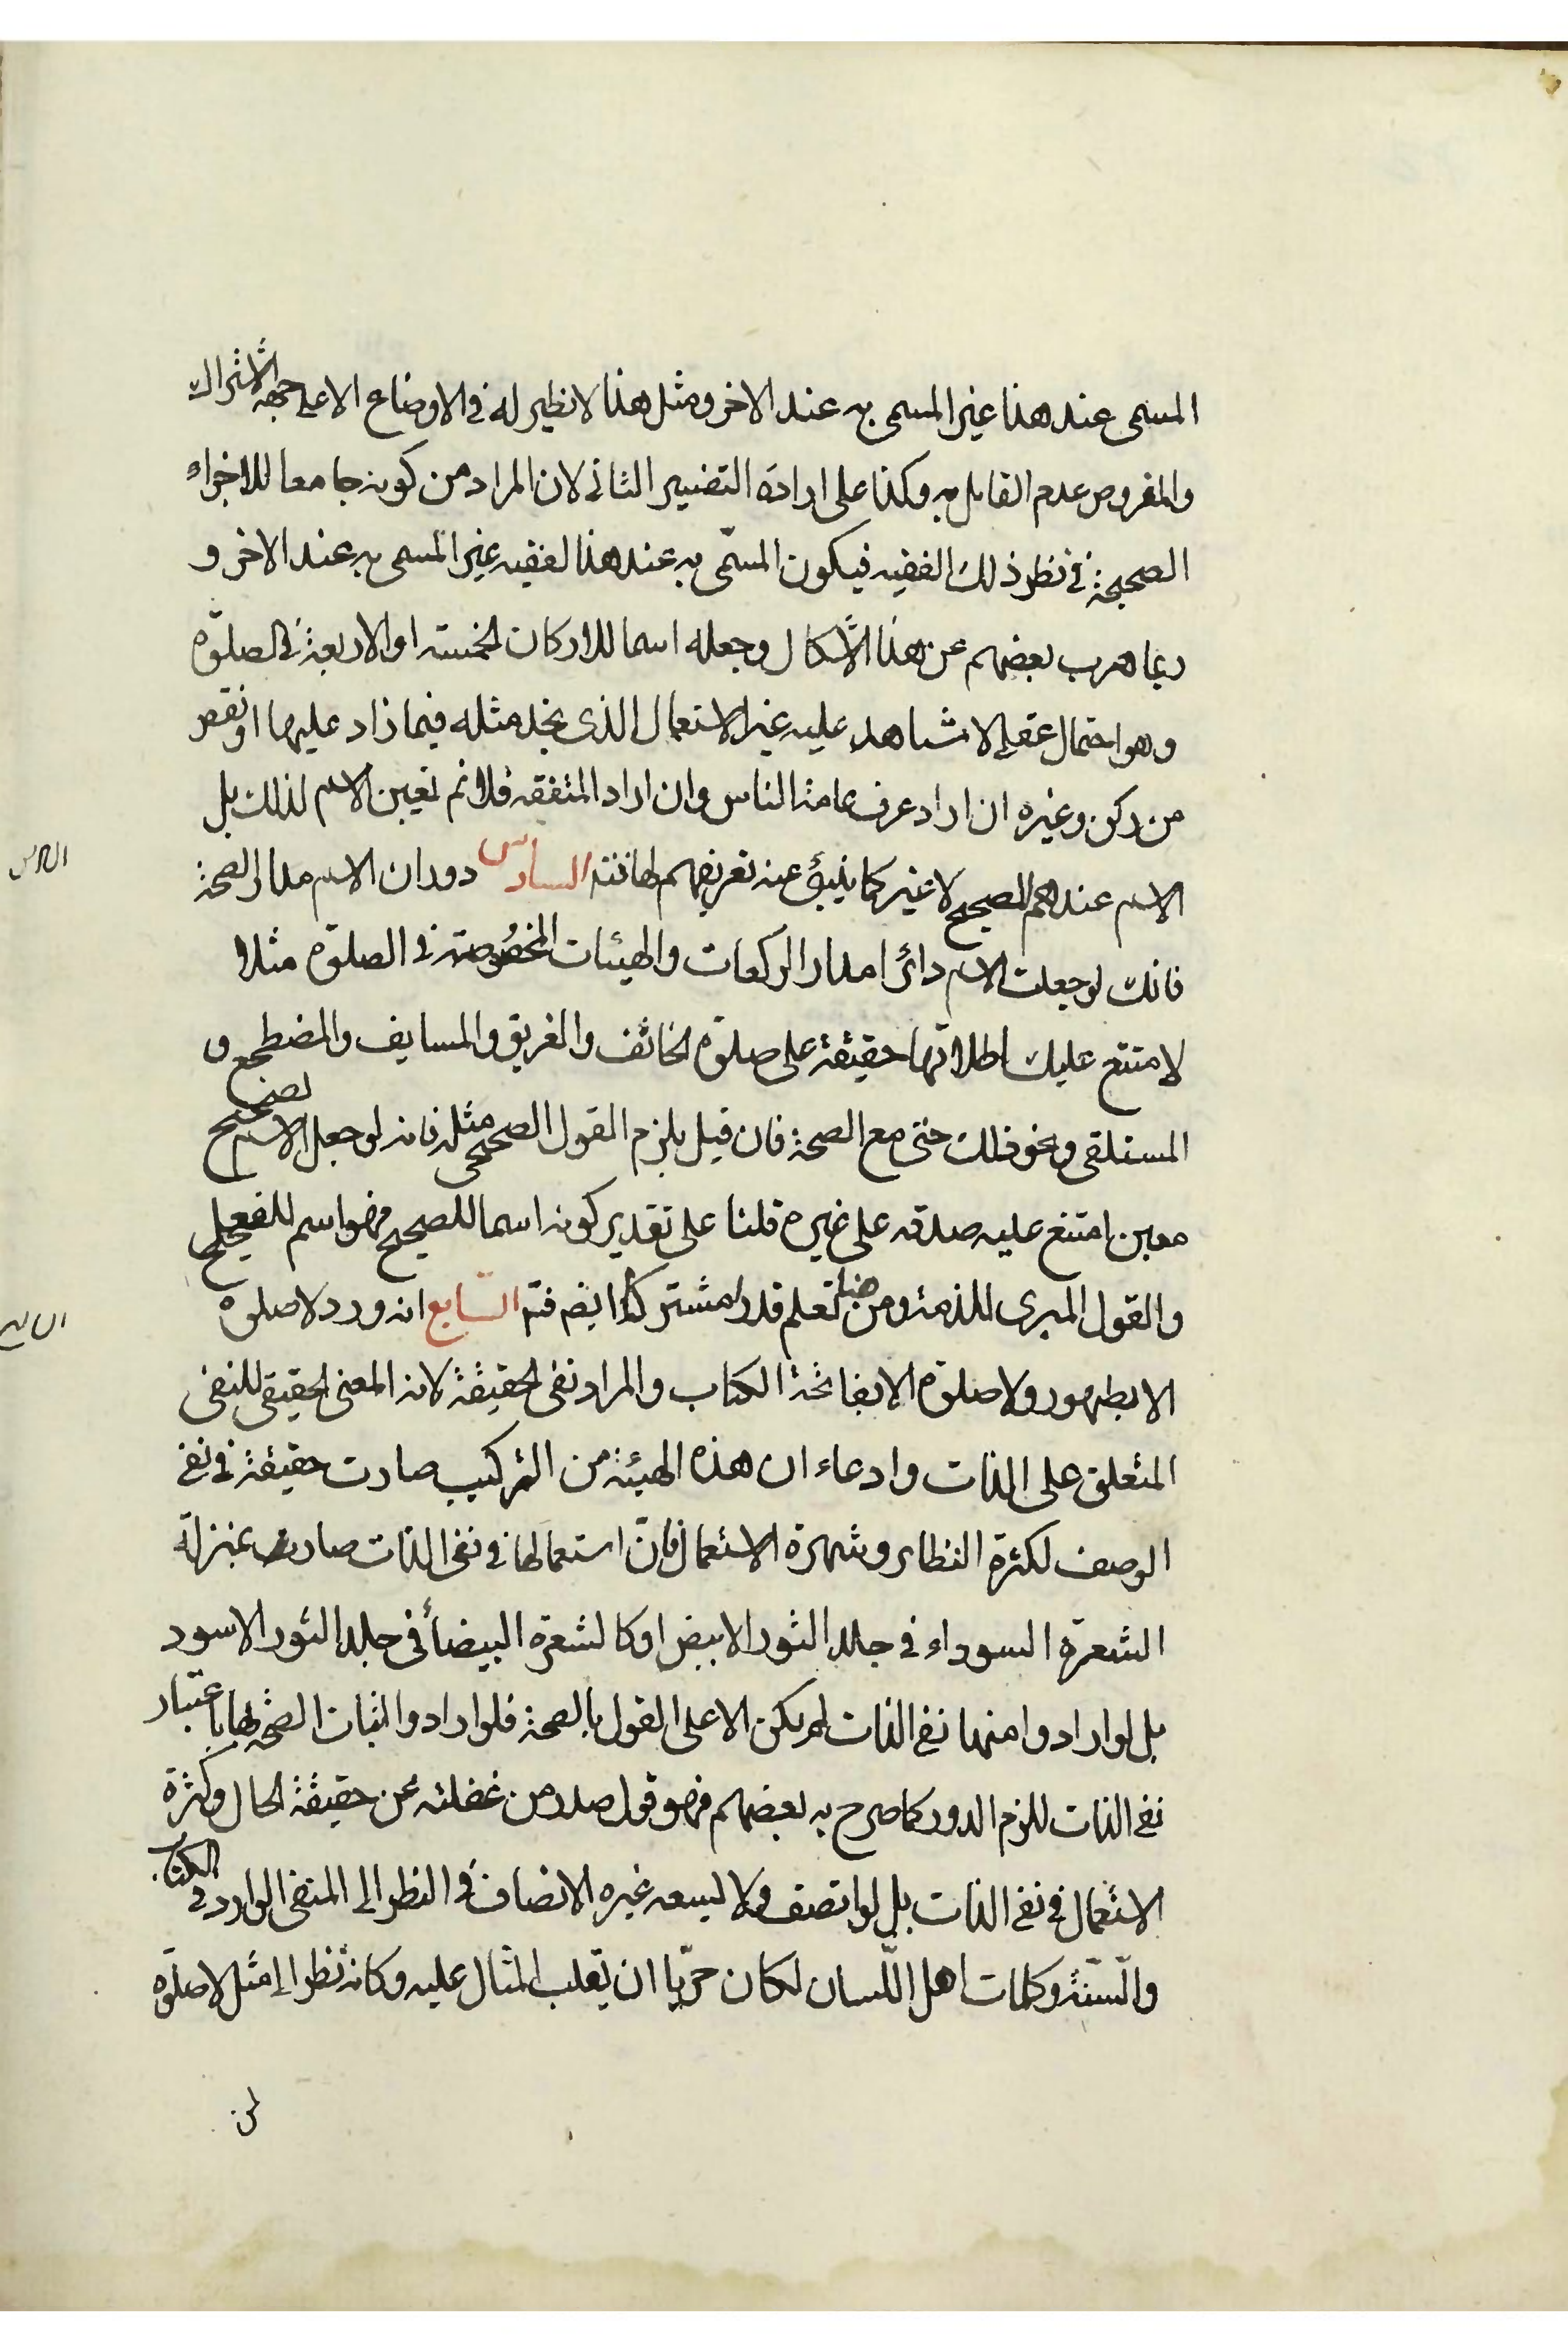 المسمى عند هذا غير المسمى به عند الاخر ومثل هذا لا نظير له فى الاوضاع الا على جهة الاشتراك
والمفروض عدم القايل به وكذا على ارادة التفسير الثانى لان المراد من كونه جامعا للاجزاء
الصحيحة فى نظر ذلك الفقيه فيكون المسمّى به عند هذا الفقيه غير المسمى به عند الاخر و
ربما هرب بعضهم عن هذا الاشكال وجعله اسما للاركان الخمسة او الاربعة فى الصلوة
وهو احتمال عقلى لا شاهد عليه غير الاستعمال الذى نجد مثله فيما زاد عليها او نقص
من ركن وغيره ان اراد عرف عامة الناس وان اراد المتفقه فلا نم تعيين الاسم لذلك بل
الاسم عندهم للصحيح لا غير كما ينبئ عنه تعريفهم لها فتد السادس دوران الاسم مدار الصحة
فانك لو جعلت الاسم دائرا مدار الركعات والهيئات المخصوصة فى الصلوة مثلا
لامتنع عليك اطلاقها حقيقة على صلوة الخائف والغريق والمسايف والمضطجع و
المستلقى ونحو ذلك حتى مع الصحة فان قيل يلزم القول الصحيحى مثله فانه لو جعل الاسم لصحيح
معين امتنع عليه صدقه على غيره قلنا على تقدير كونه اسما للصحيح فهو اسم للفعل
والقول المبرى للذمة ومن هنا تعلم قدرا مشتركا ايضم فتد السّابع انه ورد لا صلوة
الا بطهور ولا صلوة الا بفاتحة الكتاب والمراد نفى الحقيقة لانه المعنى الحقيقى للنفى
المتعلق على الذات وادعاء ان هذه الهيئة من التركيب صارت حقيقة فى نفى
الوصف لكثرة النظاير وشهرة الاستعمال فانّ استعمالها فى نفى الذات صارت بمنزلة
الشعرة السوداء فى جلد الثور الابيض او كالشعرة البيضاء فى جلد الثور الاسود
بل لو ارادوا منها نفى الذات لم يكن الا على القول بالصحة فلو ارادوا اثبات الصحة لها باعتبار
نفى الذات للزم الدور كما صرح به بعضهم فهو قول صدر من غفلته عن حقيقة الحال وكثرة
الاستعمال فى نفى الذات بل لو انصف ولا يسعه غيره الانصاف فى النظر الى المنفى الوارد فى الكتاب
والسّنّة وكلمات اهل اللّسان لكان حريّا ان يقلب المثال عليه وكانه نظر الى مثل لا صلوة
السادس